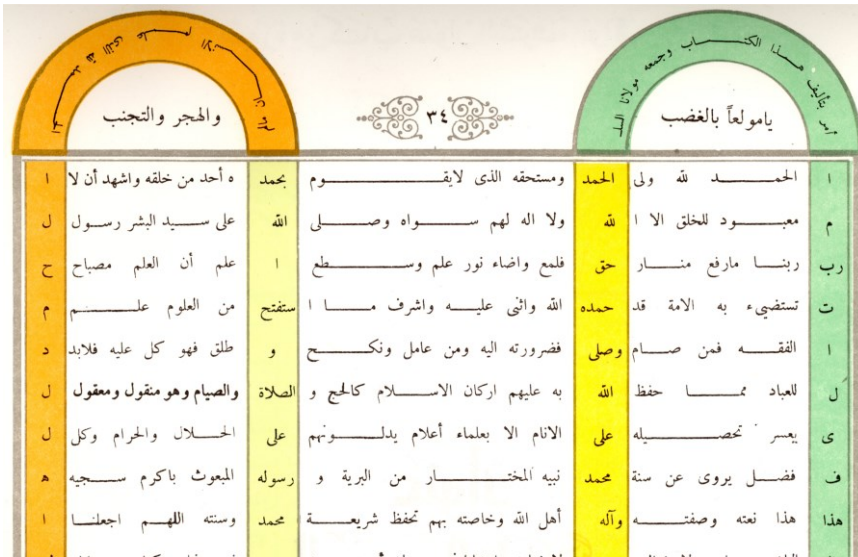 أمر بتأليف هـــذا الكتـــــاب وجمعه مولانا السلـ
يامولعاً بالغضب
٣٤
والهجر والتجنب
ا الحمـــــــد لله ولى الحمد ومستحقه الذى لايقـــــــــوم بحمد ه أحد من خلقه واشهد أن لا ا
م معبــــــود للخلق الا ا لله ولا اله لهم ســــــواه وصــــــلى الله على ســــيد البشر رسول ل
رب ربنـــا مارفع منـــار حق فلمع واضاء نور علم وســــــطع ا علم أن العلم مصباح ح
ت تستضيء به الامة قد حمده الله واثنى عليـــه واشرف مـــا ا ستفتح من العلوم علـــــم م
ا الفقـــه فمن صـــام وصلى فضرورته اليه ومن عامل ونكـــــح و طلق فهو كل عليه فلابد د
ل للعباد ممـــــا حفظ الله به عليهم اركان الاســـــلام كالحج و الصلاة والصيام وهو منقول ومعقول ل
ى يعسر تحصــــيله على الانام الا بعلماء أعلام يدلــــونهم على الحـــلال والحرام وكل ل
ف فضـــل يروى عن سنة محمد نبيه المختـــــــار من البرية و رسوله المبعوث باكرم ســـجيه ه
هذا هذا نعته وصفتــــه وآله أهل الله وخاصته بهم تحفظ شريعـــــة محمد وسنته اللهـــم اجعلنـــا ا